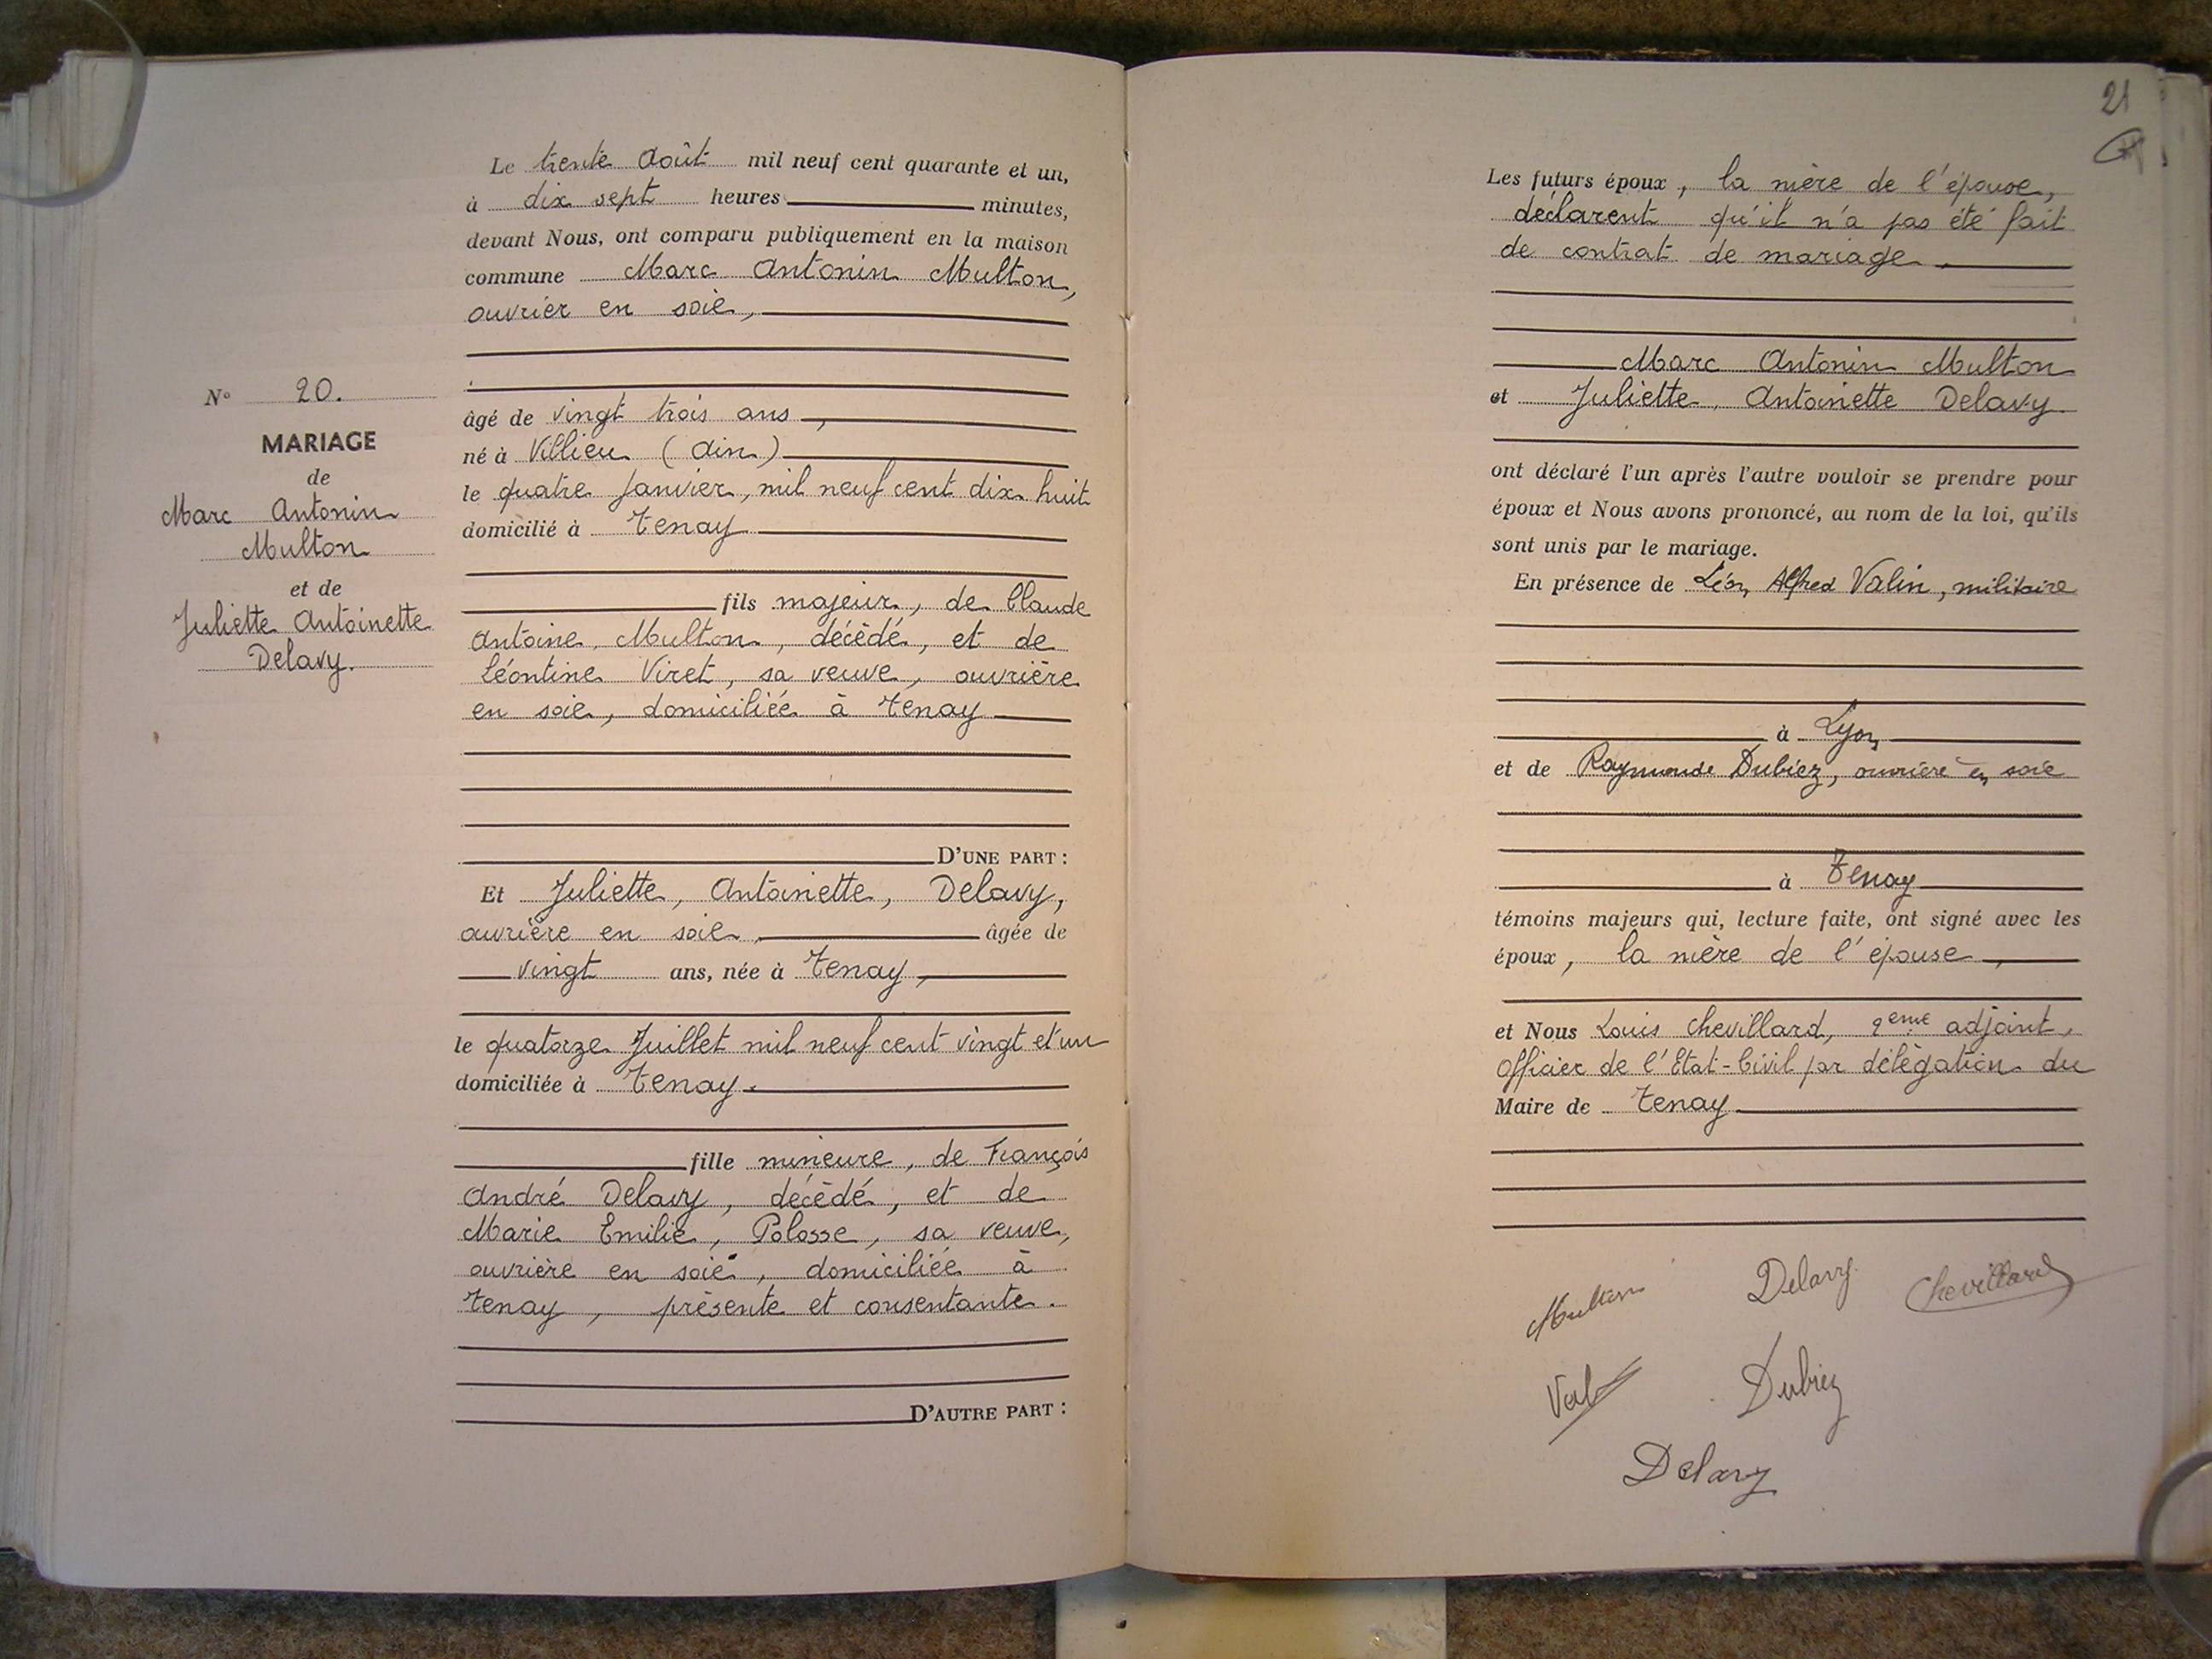 Le trente Août mil neuf cent quarante et un,
à dix sept heures minutes,
devant Nous, ont comparu publiquement en la maison
commune Marc Antonin Multon,
ouvrier en soie,
N° 20.
MARIAGE
de
Marc Antonin
Multon
et de
Juliette Antoinette
Delavy.
âgé de vingt trois ans,
né à Villieu (Ain)
le quatre Janvier, mil neuf cent dix huit
domicilié à Tenay
fils majeur, de Claude
Antoine, Multon, décédé, et de
Léontine Viret, sa veuve, ouvrière
en soie, domiciliée à Tenay
D'UNE PART :
Et Juliette, Antoinette, Delavy,
ouvrière en soie, âgée de
vingt ans, née à Tenay,
le quatorze Juillet mil neuf cent vingt et un
domiciliée à Tenay.
fille mineure, de François
André Delavy, décédé, et de
Marie Emilie, Polosse, sa veuve,
ouvrière en soie, domiciliée à
Tenay, présente et consentante.
D'AUTRE PART :
21
Les futurs époux, la mère de l'épouse,
déclarent qu'il n'a pas été fait
de contrat de mariage.
Marc Antonin Multon
et Juliette, Antoinette Delavy.
ont déclaré l'un après l'autre vouloir se prendre pour
époux et Nous avons prononcé, au nom de la loi, qu'ils
sont unis par le mariage.
En présence de Léon Alfred Valin, militaire
à Lyon
et de Raymonde Dubiez, ouvrière en soie
à Tenay
témoins majeurs qui, lecture faite, ont signé avec les
époux, la mère de l'épouse,
et Nous Louis Chevillard, 2eme adjoint,
Officier de l'Etat-Civil par délégation du
Maire de Tenay
Multon Delavy. Chevillard
Dubiez
Delavy